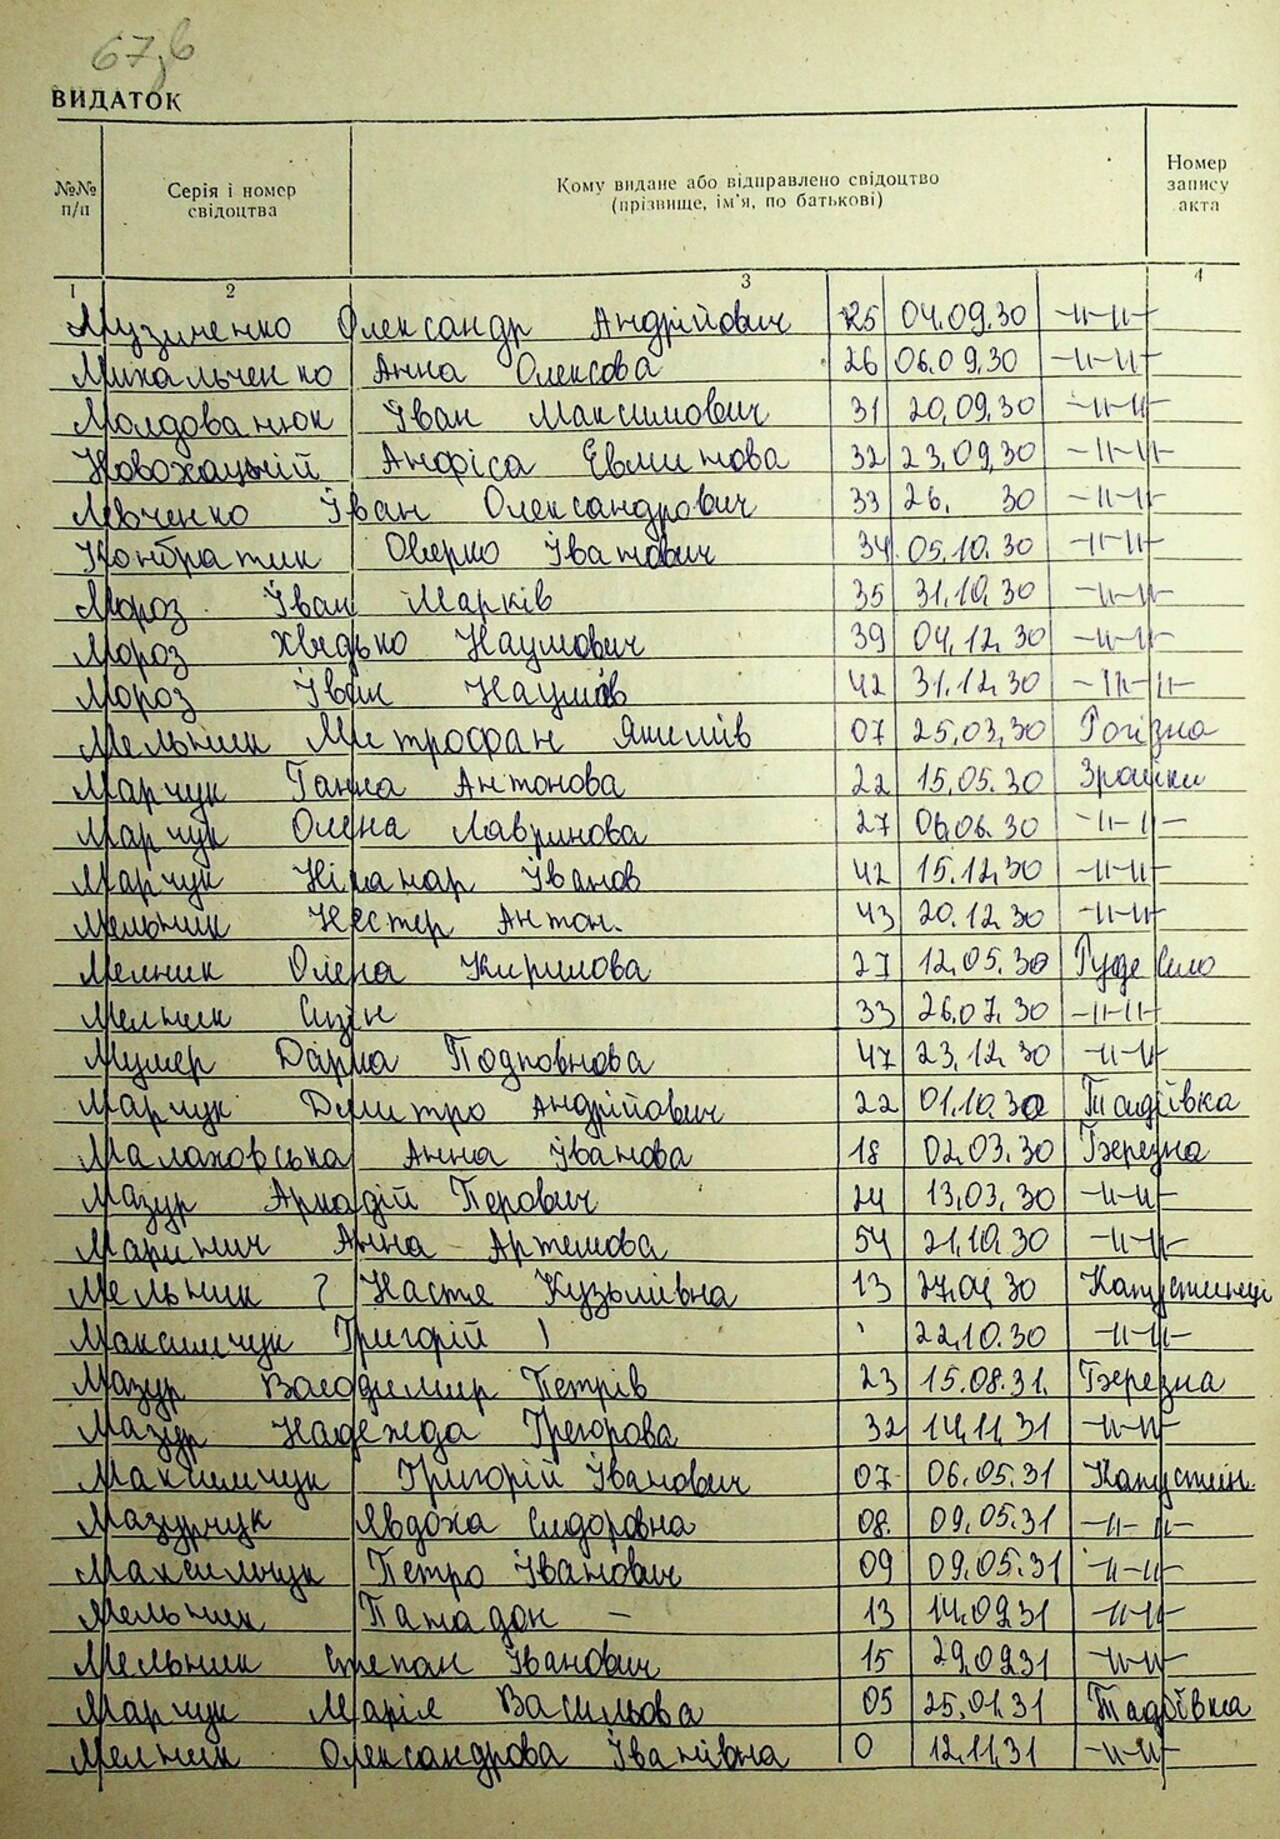 67,б
ВИДАТОК
№№ п/п Серія і номер свідоцтва Кому видане або відправлено свідоцтво (прізвище, ім'я, по батькові) Номер запису акта
1 2 3 4
Музиченко Олександр Андрійович 25 04.09.30 -||-||-
Михальченко Анна Олексова 26 06.09.30 -||-||-
Молдованюк Іван Максимович 31 20.09.30 -||-||-
Новохацький Анфіса Евминова 32 23.09.30 -||-||-
Левченко Іван Олександрович 33 26. 30 -||-||-
Кондратик Оверко Іванович 34 05.10.30 -||-||-
Мороз Іван Марків 35 31.10.30 -||-||-
Мороз Хведько Наумович 39 04.12.30 -||-||-
Мороз Іван Наумів 42 31.12.30 -||-||-
Мельник Митрофан Якимів 07 25.03.30 Рогізна
Марчук Ганна Антонова 22 15.05.30 Зрайки
Марчук Олена Лавринова 27 06.06.30 -||-||-
Марчук Ніканар Іванов 42 15.12.30 -||-||-
Мельник Нестер Антон. 43 20.12.30 -||-||-
Мелник Олена Кирилова 27 12.05.30 Руде Село
Мелник Сизін 33 26.07.30 -||-||-
Мумер Дарка 47 23.12.30 -||-||-
Марчук Димитро Андрійович 22 01.10.30 Тадіївка
Малаховська Анна Іванова 18 02.03.30 Березна
Мазур Аркадій Перович 24 13.03.30 -||-||-
Маринич Анна Артемова 54 21.10.30 -||-||-
Мельник ? Настя Кузьмівна 13 27.04.30 Капустинці
Максимчук Григорій 22.10.30 -||-||-
Мазур Володимир Петрів 23 15.08.31. Березна
Мазур Надежда Грегорова 32 14.11.31 -||-||-
Максимчук Григорій Іванович 07 06.05.31 Капустин.
Мазурчук Явдоха Сидоровна 08. 09.05.31 -||-||-
Максимчук Петро Іванович 09 09.05.31 -||-||-
Мельник — 13 14.09.31 -||-||-
Мельник Степан Іванович 15 29.09.31 -||-||-
Марчук Марія Васильова 05 25.01.31 Тадіївка
Мелник Олександрова Іванівна 0 12.11.31 -||-||-